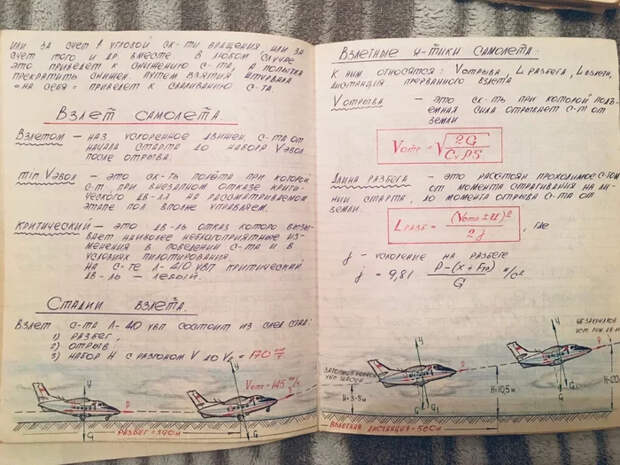 или за счет ↑ угловой ск-ти вращения или за
счет того и др. вместе. В любом случае
это приведет к снижению с-та, а попытка
прекратить снижен. путем взятия штурвала
"на себя" приведет к сваливанию с-та.
Взлет самолета.
Взлетом – наз. ускоренное движен. с-та от
начала старта до набора Vэвол
после отрыва.
min Vэвол – это ск-ть полета при которой
с-т, при внезапном отказе крити-
ческого дв-ля на рассматриваемом
этапе пол. вполне управляем.
Критический – это дв-ль отказ которого вызы-
вает наиболее неблагоприятные из-
менения в поведении с-та и в
условиях пилотирования.
На с-те Л-410 увп критический
дв-ль – левый.
Стадии взлета.
Взлет с-та Л-410 увп состоит из след. стад.:
1) разбег,
2) отрыв,
3) набор H с разгоном V до
Vотр = 145
У
P
G
У
P
G
разбег =
Взлетные х-тики самолета.
К ним относятся: Vотрыва, Lразбега, Lвзлета,
дистанция прерванного взлета
Vотрыва – это ск-ть при которой подъ-
емная сила отрывает с-т от
земли
Vотр = √ 2G / CyρS
Длина разбега – это расстоян. проходимое с-том
от момента страгивания на ли-
нии старта, до момента отрыва с-та от
земли.
Lразб = (Vотр ± U)² / 2j , где
j – ускорение на разбеге
j = 9,81 P – (X + Fтр) / G м/с²
H=3-5м
H=10,5м
У
G
У
G
взлетная дистанция